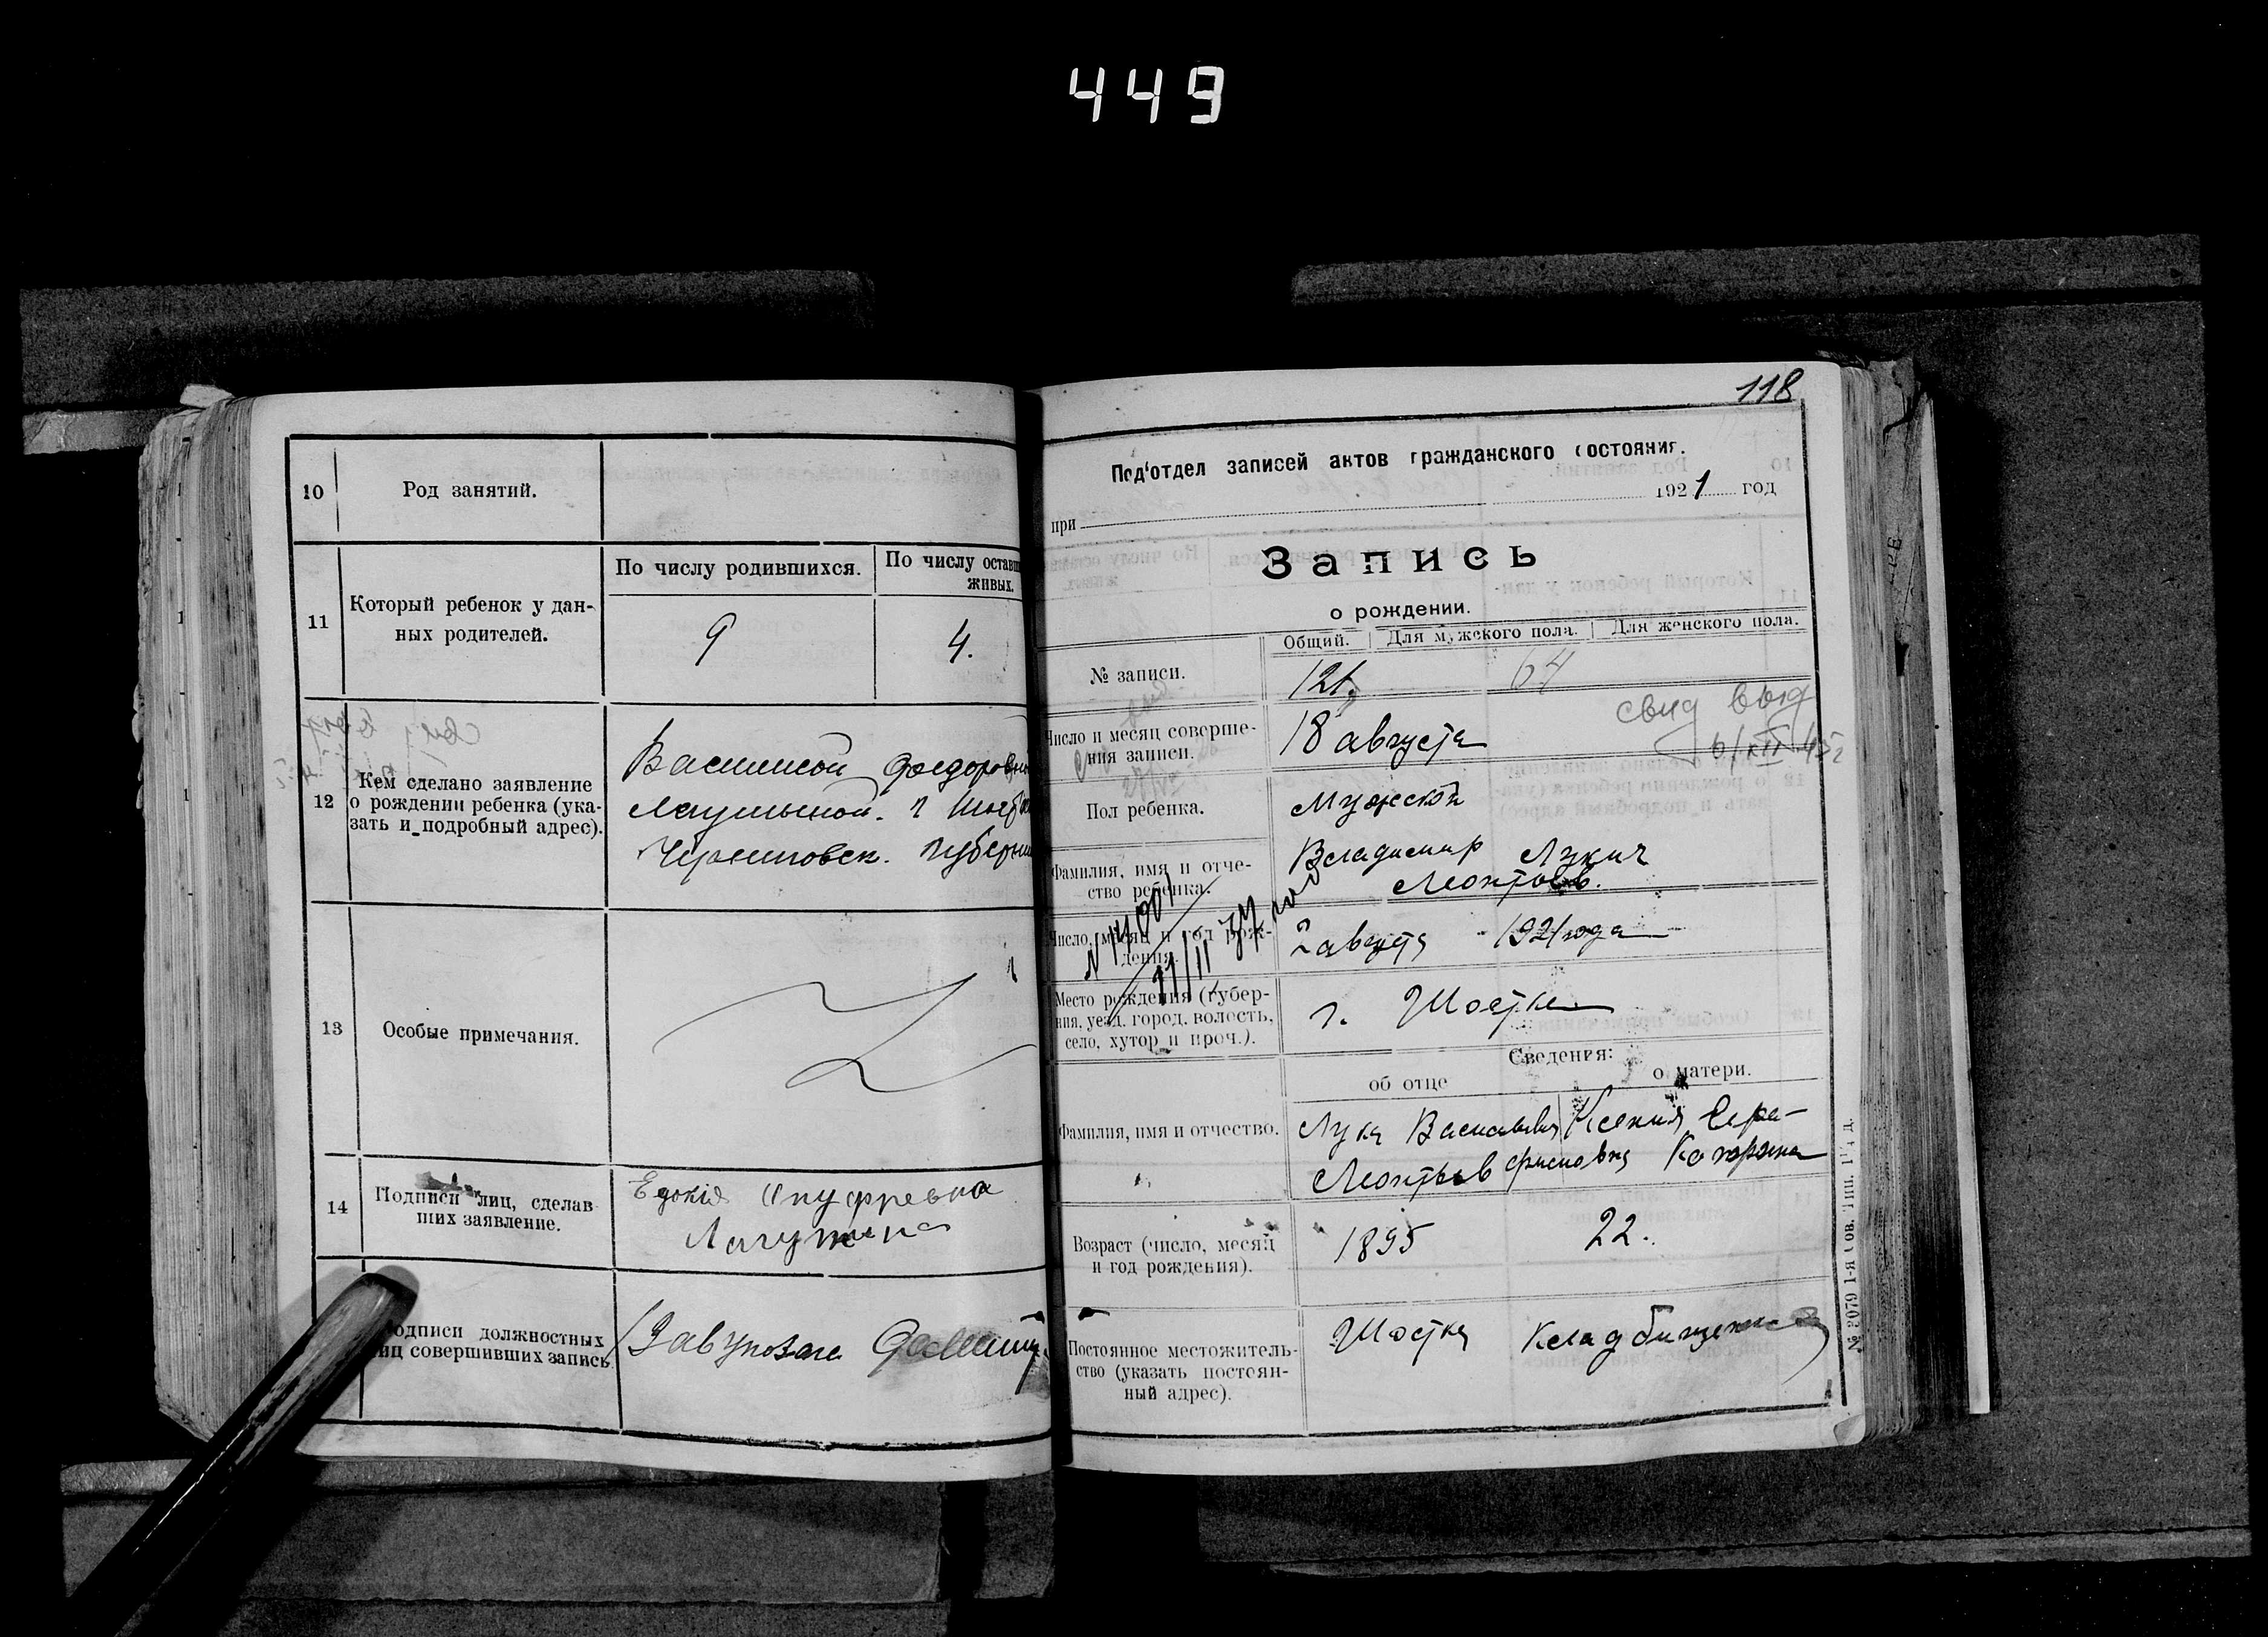 449
10
Род занятий.
11
Который ребенок у дан-
ных родителей.
По числу родившихся.
По числу оставш
живых.
9
4.
12
Кем сделано заявление
о рождении ребенка (ука-
зать и подробный адрес).
Василисой Федоровн
г
Черниговск. Губернии
13
Особые примечания.
14
Подписи лиц, сделав
ших заявление.
Ануфревна
одписи должностных
иц совершивших запись
118
Под'отдел записей актов гражданского состояния.
при
1921 год
Запись
о рождении.
Общий.
Для мужского пола.
Для женского пола.
№ записи.
121
64
Число и месяц соверше-
ния записи.
18 августа
свид выд
Пол ребенка.
Мужской
Фамилия, имя и отче-
ство ребенка.
Владимир Лукич
Леонтьев.
Число, месяц и год рож-
дения.
2 августа 1921 года
Место рождения (губер-
ния, уезд, город, волость,
село, хутор и проч.).
г. Шостка
Сведения:
об отце
о матери.
Фамилия, имя и отчество.
Лука Васильевич
Леонтьев
Ксения Сера-
фимовна
Возраст (число, месяц
и год рождения).
1895
22.
Постоянное местожитель-
ство (указать постоян-
ный адрес).
Шостка